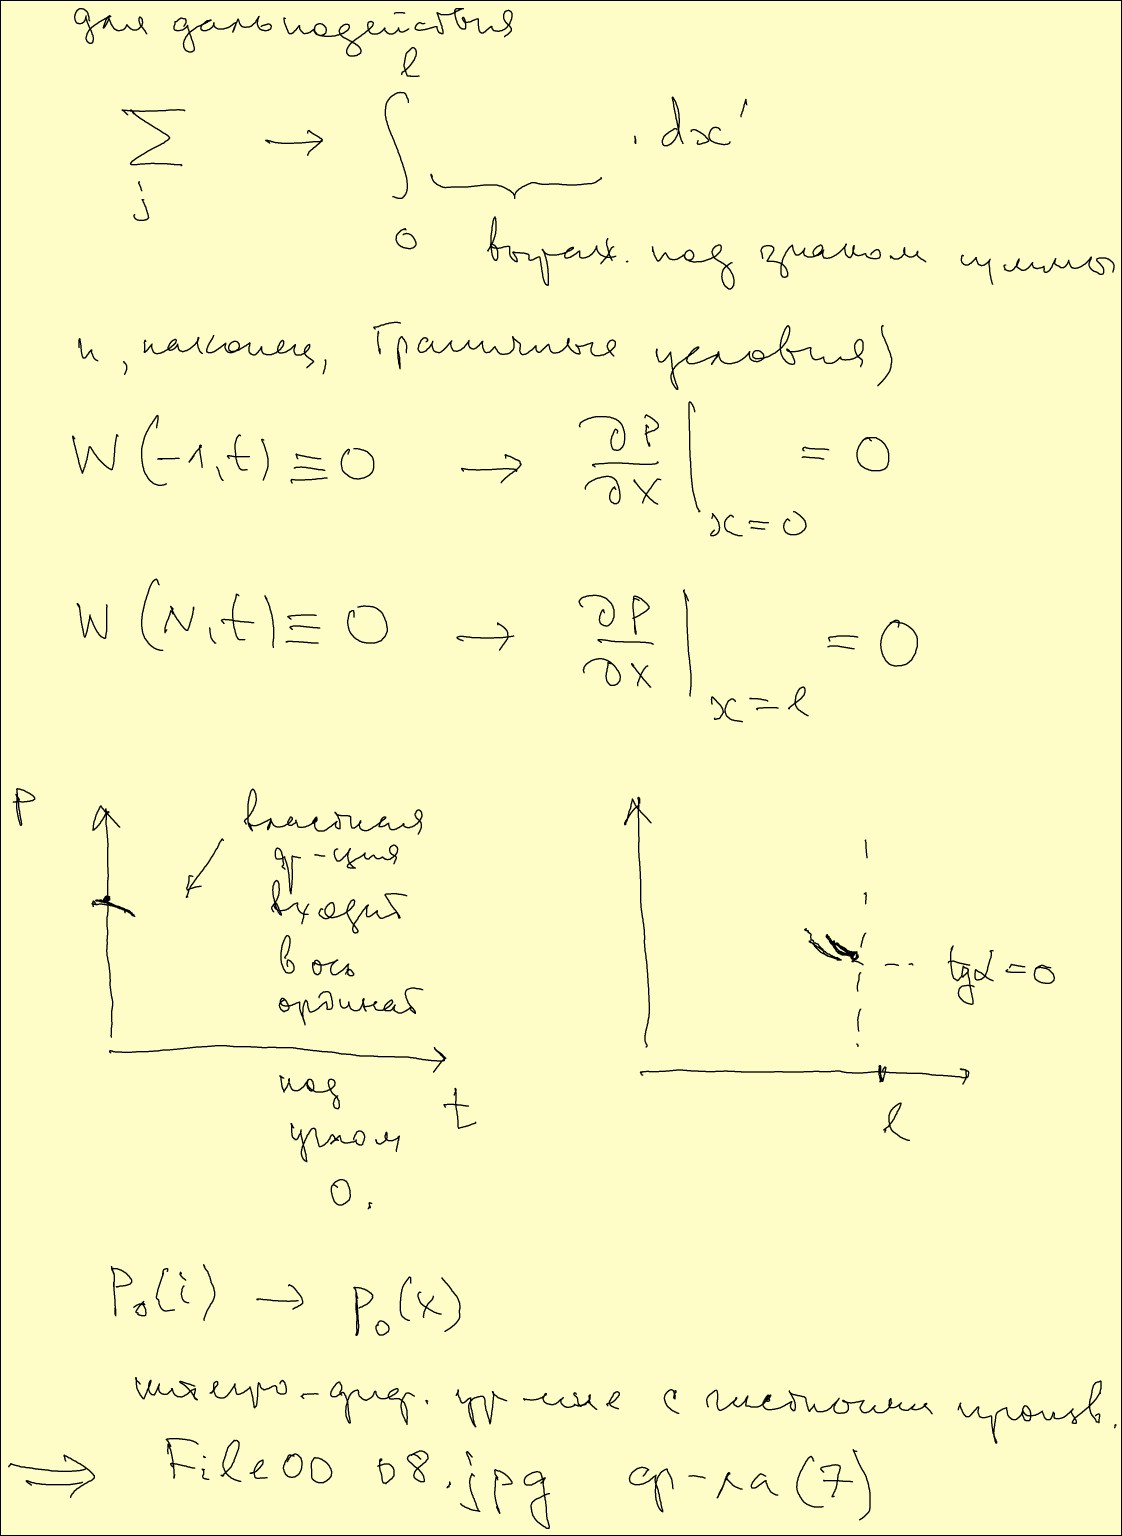 для дальнодействия
Σ_j → ∫_0^l . dx'
выраж. под знаком суммы
и, наконец, Граничные условия)
W(-1,t) ≡ 0 → ∂P/∂x |_{x=0} = 0
W(N,t) ≡ 0 → ∂P/∂x |_{x=l} = 0
P
t
входит
в ось
ординат
под
углом
0.
tgα = 0
l
P₀(i) → P₀(x)
интегро-диф. ур-ние с частными произв.
⇒ File00 08.jpg ф-ла (7)